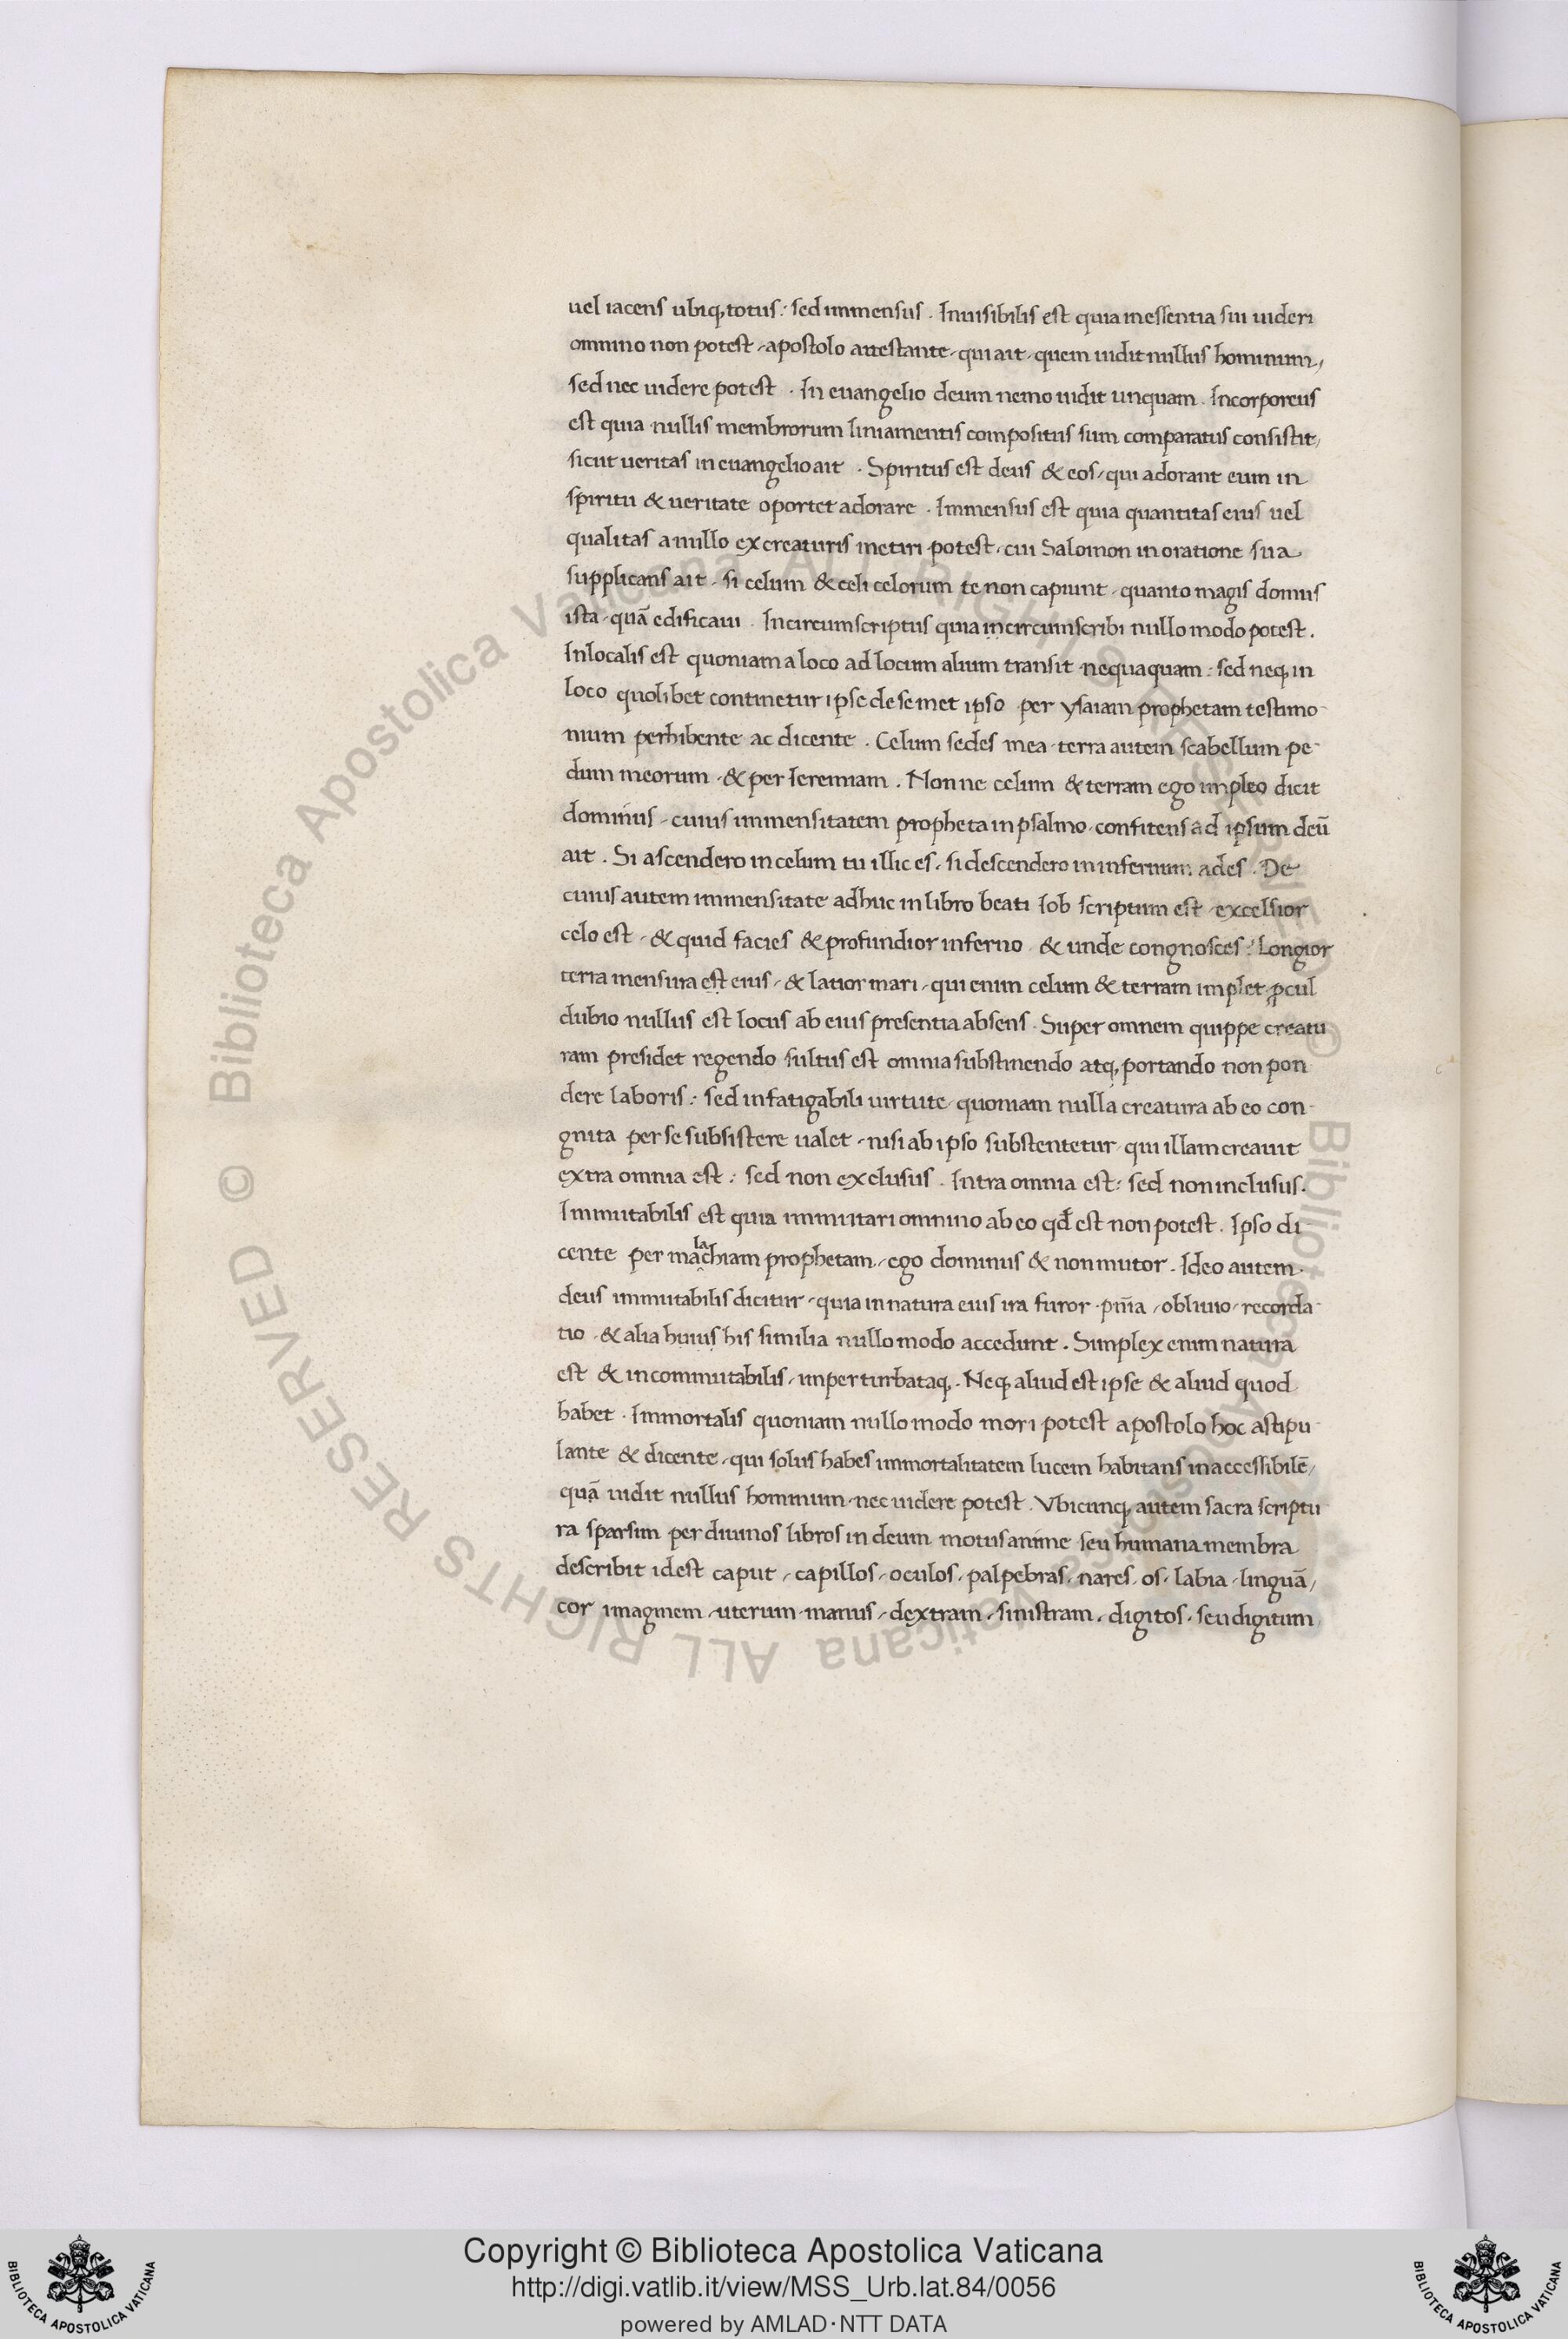 uel iacens ubiq; totus: sed immensus. Inuisibilis est quia in essentia sui uideri
omnino non potest, apostolo attestante, qui ait, quem uidit nullus hominum,
sed nec uidere potest. In euangelio deum nemo uidit unquam. Incorporeus
est quia nullis membrorum liniamentis compositus sum comparatus consistit,
sicut ueritas in euangelio ait. Spiritus est deus & eos, qui adorant eum in
spiritu & ueritate oportet adorare. Immensus est quia quantitas eius uel
qualitas a nullo ex creaturis metiri potest, cui Salomon in oratione sua
supplicans ait, si celum & celi celorum te non capiunt, quanto magis domus
ista, quā edificaui. Incircumscriptus quia incircumscribi nullo modo potest.
Inlocalis est quoniam a loco ad locum alium transit nequaquam: sed neq; in
loco quolibet continetur ipse de semet ipso per ysaiam prophetam testimo-
nium perhibente ac dicente. Celum sedes mea, terra autem scabellum pe-
dum meorum, & per Ieremiam. Nonne celum & terram ego impleo dicit
dominus, cuius immensitatem propheta in psalmo, confitens ad ipsum deū
ait. Si ascendero in celum tu illic es, si descendero in infernum ades. De
cuius autem immensitate adhuc in libro beati Iob scriptum est, excelsior
celo est, & quid facies & profundior inferno & unde congnosces: Longior
terra mensura est eius, & latior mari, qui enim celum & terram implet, p̄cul
dubio nullus est locus ab eius presentia absens. Super omnem quippe creatu
ram presidet regendo sultus est omnia substinendo atq; portando non pon
dere laboris: sed infatigabili uirtute, quoniam nulla creatura ab eo con-
gnita per se subsistere ualet, nisi ab ipso substentetur, qui illam creauit
extra omnia est: sed non exclusus. Intra omnia est: sed non inclusus.
Immutabilis est quia immutari omnino ab eo qđ est non potest. Ipso di-
cente per malachiam prophetam, ego dominus & non mutor. Ideo autem
deus immutabilis dicitur, quia in natura eius ira furor, pn̄ia, obliuio, recorda-
tio, & alia huius his similia nullo modo accedunt. Simplex enim natura
est & incommutabilis, imperturbataq;. Neq; aliud est ipse & aliud quod
habet. Immortalis quoniam nullo modo mori potest apostolo hoc astipu-
lante & dicente, qui solus habes immortalitatem lucem habitans inaccessibilē,
quā uidit nullus hominum, nec uidere potest. Vbicunq; autem sacra scriptu-
ra sparsim per diuinos libros in deum motus anime seu humana membra
describit idest caput, capillos, oculos, palpebras, nares, os, labia, linguā,
cor imaginem, uterum, manus, dextram, sinistram, digitos, seu digitum
© Biblioteca Apostolica Vaticana ALL RIGHTS RESERVED
© Biblioteca Apostolica Vaticana ALL RIGHTS RESERVED
Copyright © Biblioteca Apostolica Vaticana
http://digi.vatlib.it/view/MSS_Urb.lat.84/0056
powered by AMLAD·NTT DATA
BIBLIOTECA APOSTOLICA VATICANA
BIBLIOTECA APOSTOLICA VATICANA